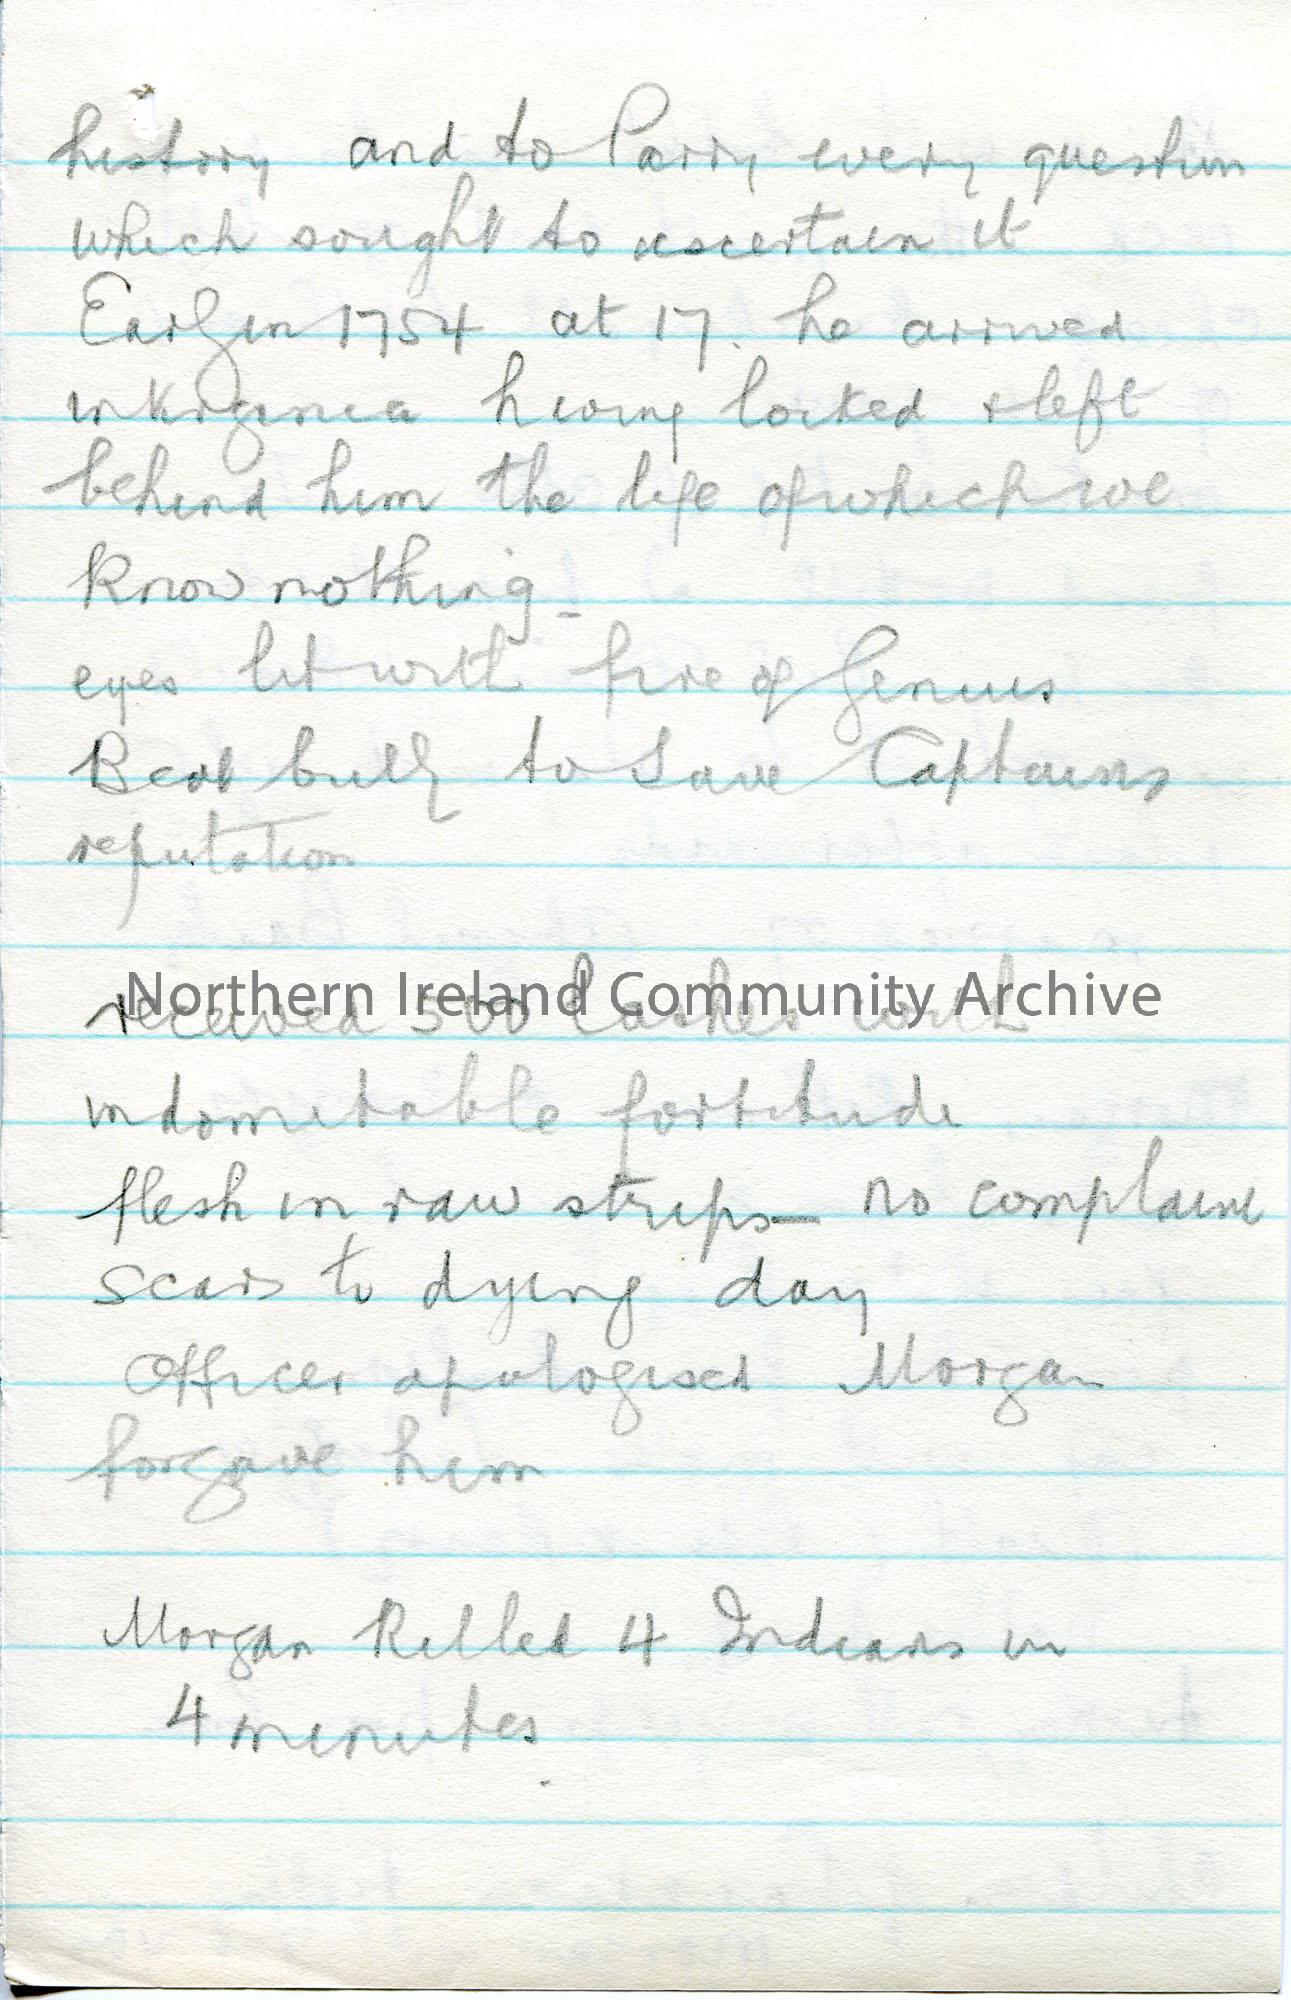 history and to Parry every question
which sought to ascertain it
Early in 1754 at 17. he arrived
in Virginia having locked & left
behind him the life of which we
know nothing -
eyes lit with fire of Genius
Beat bully to save Captains
reputation
Northern Ireland Community Archive
received 500 lashes with
indomitable fortitude
flesh in raw strips - no complaint
scars to dying day
Officer apologised Morgan
forgave him
Morgan Killed 4 Indians in
4 minutes.